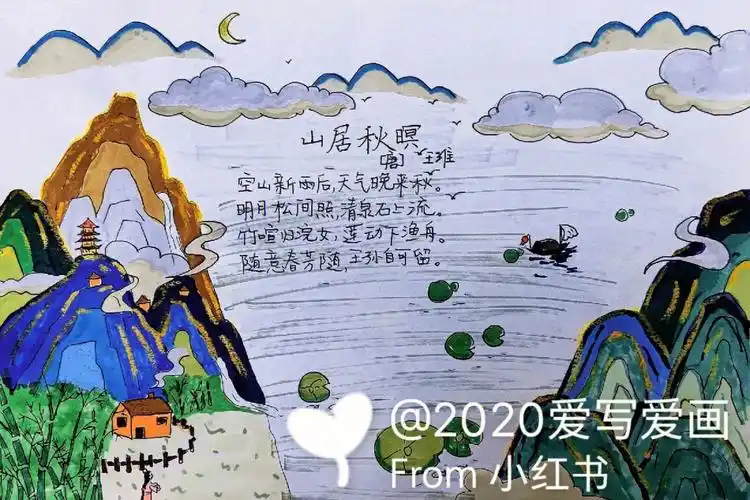 山居秋暝
[唐] 王维
空山新雨后,天气晚来秋。
明月松间照,清泉石上流。
竹喧归浣女,莲动下渔舟。
随意春芳随,王孙自可留。
@2020爱写爱画
From 小红书